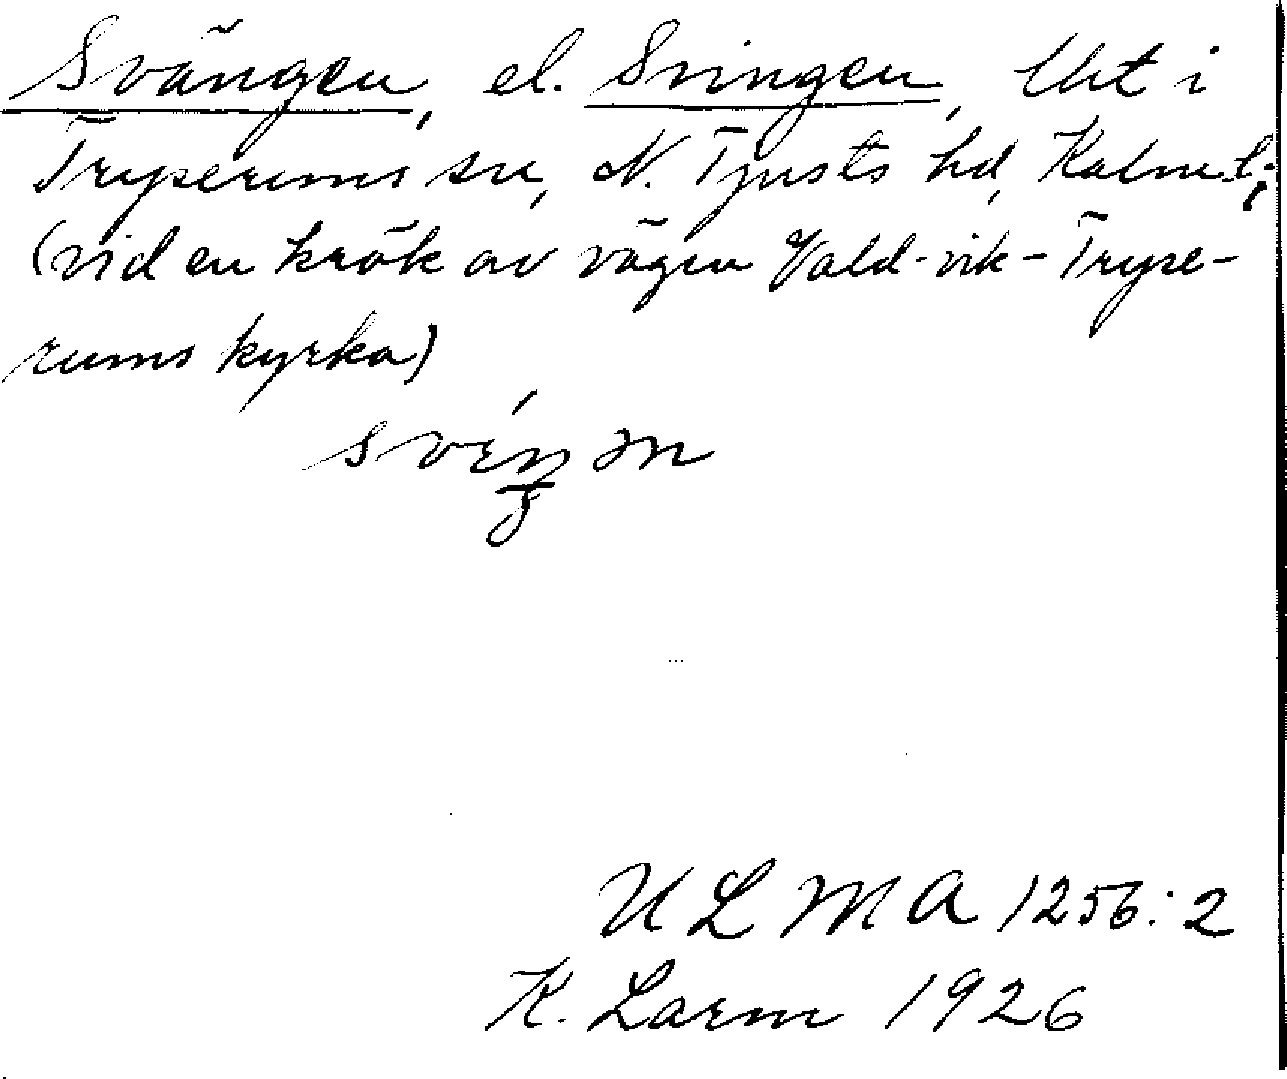 Svängen, el. Svingen, lht i
Tryserums sn, N. Tjusts hd, Kalm. l.
(vid en krök av vägen Vald-vik-Tryse-
rums kyrka)
ULMA 1256:2
K. Larm 1926